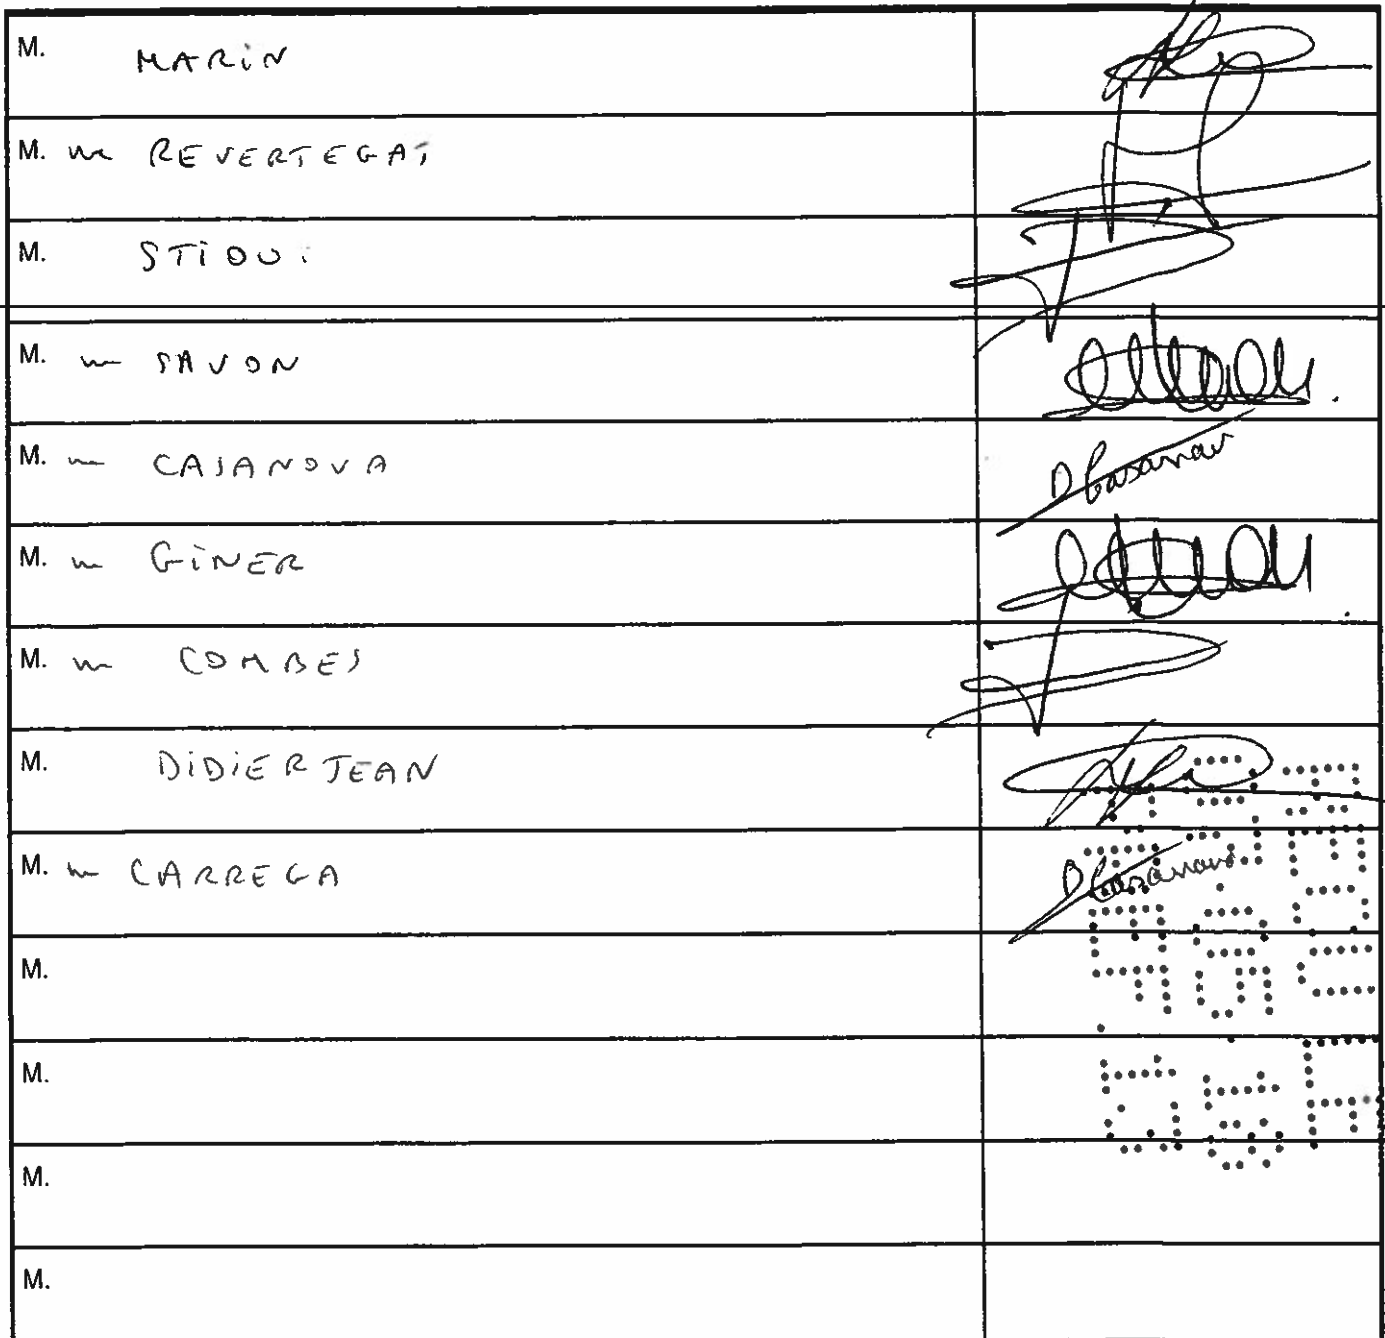 M. MARiN
M. me REVERTEGAT
M. STiOUi
M. me SAVON
M. me CASANOVA D Casanov
M. me GiNER
M. me COMBES
M. DiDiER JEAN
M. me CARREGA D Casanova
M.
M.
M.
M.